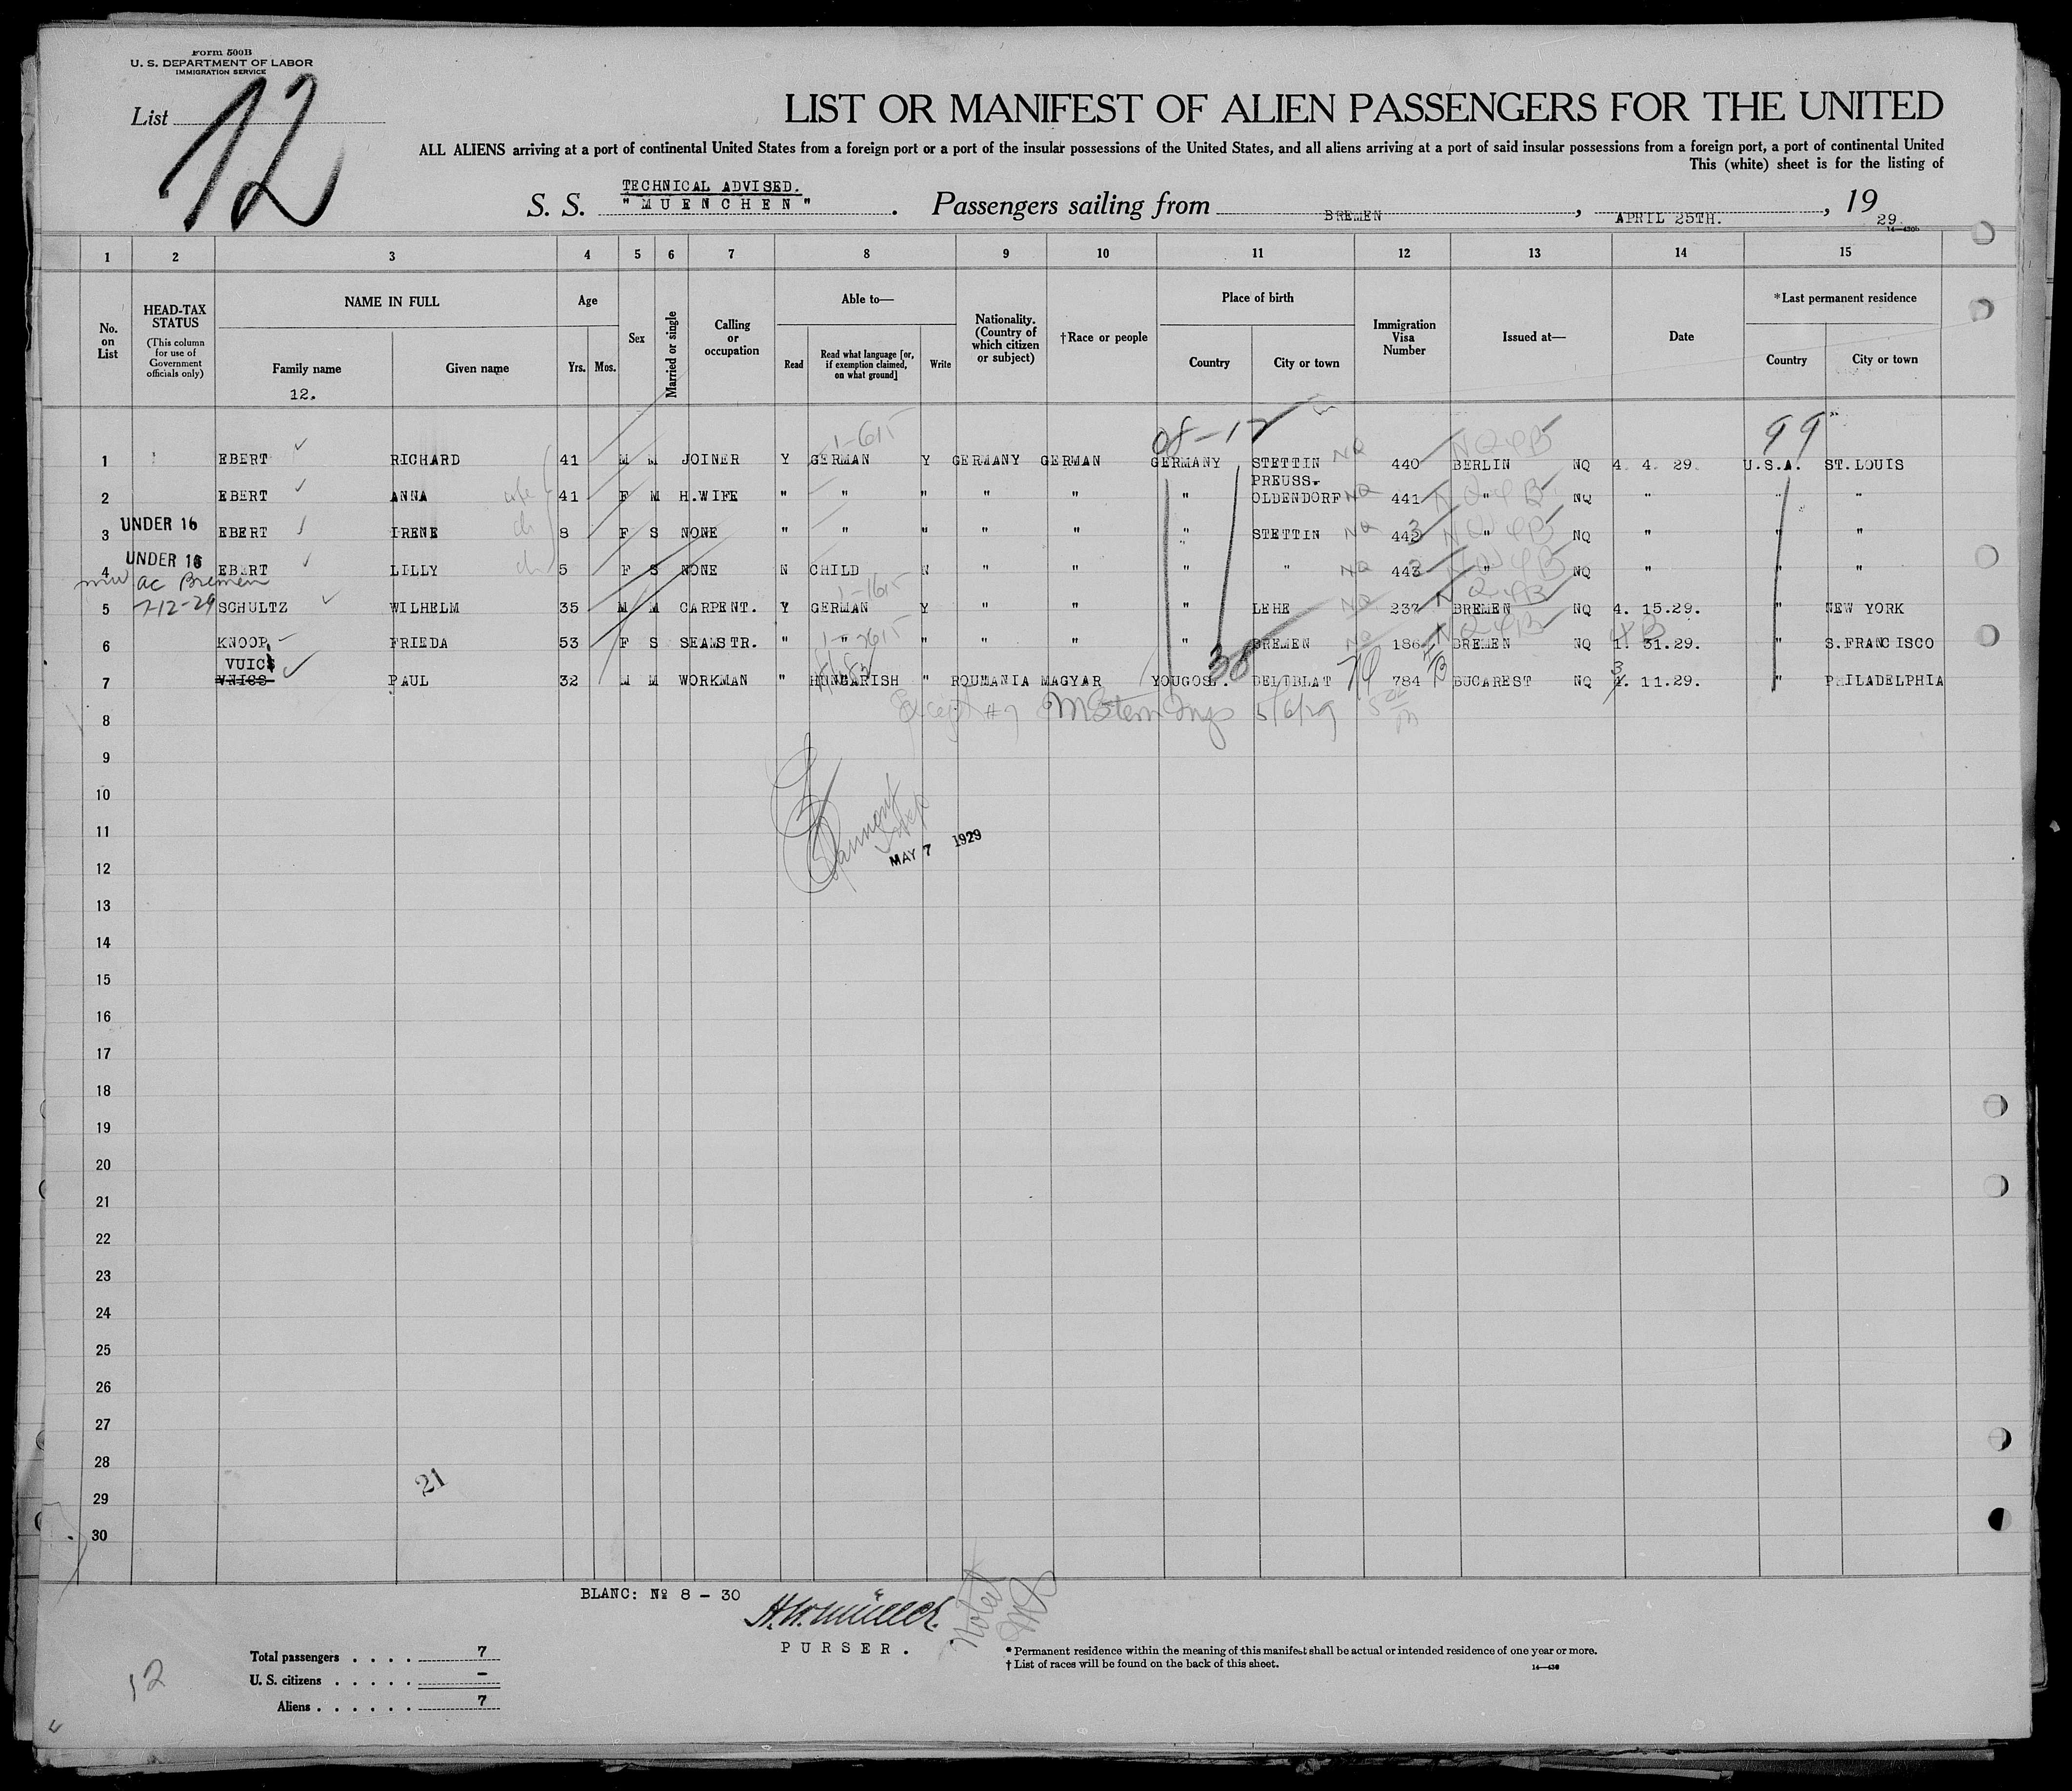 Form 500B
U. S. DEPARTMENT OF LABOR
IMMIGRATION SERVICE
List 12
LIST OR MANIFEST OF ALIEN PASSENGERS FOR THE UNITED
ALL ALIENS arriving at a port of continental United States from a foreign port or a port of the insular possessions of the United States, and all aliens arriving at a port of said insular possessions from a foreign port, a port of continental United
This (white) sheet is for the listing of
TECHNICAL ADVISED.
S. S. "MUENCHEN". Passengers sailing from BREMEN, APRIL 25TH., 19 29.
14—430b
1 2 3 4 5 6 7 8 9 10 11 12 13 14 15
No. on List
HEAD-TAX STATUS
(This column for use of Government officials only)
NAME IN FULL
Family name
Given name
12.
Age
Yrs. Mos.
Sex
Married or single
Calling or occupation
Able to—
Read
Read what language [or, if exemption claimed, on what ground]
Write
Nationality. (Country of which citizen or subject)
†Race or people
Place of birth
Country
City or town
Immigration Visa Number
Issued at—
Date
*Last permanent residence
Country
City or town
1-615 08-12 NQ 4B 99
1 EBERT RICHARD 41 M M JOINER Y GERMAN Y GERMANY GERMAN GERMANY STETTIN NQ 440 BERLIN NQ 4. 4. 29. U.S.A. ST.LOUIS
2 EBERT ANNA wife 41 F M H.WIFE " " " " " " PREUSS. OLDENDORF NQ 441 " NQ " " "
UNDER 16
3 EBERT IRENE ch 8 F S NONE " " " " " " STETTIN NQ 442 3 " NQ " " "
UNDER 16
4 EBERT LILLY ch 5 F S NONE N CHILD N " " " " NQ 443 2 " NQ " " "
ac Bremen
7-12-29
1-1615
5 SCHULTZ WILHELM 35 M M CARPENT. Y GERMAN Y " " " LEHE NQ 237 BREMEN NQ 4. 15.29. " NEW YORK
6 KNOOP FRIEDA 53 F S SEAMSTR. " " " " " " BREMEN NQ 186 BREMEN NQ 1. 31.29. " S.FRANCISCO
VUICS
7 VNICS PAUL 32 M M WORKMAN " HUNGARISH " ROUMANIA MAGYAR YOUGOSL. 38 DELIBLAT 784 BUCAREST NQ 3 11.29. " PHILADELPHIA
8 Except #7 MStern Insp 5/6/29
9
10
11
MAY 7 1929
12
13
14
15
16
17
18
19
20
21
22
23
24
25
26
27
28
21
29
30
BLANC: № 8 - 30
H.W.Müller.
PURSER.
Noted
Total passengers . . . . 7
U. S. citizens . . . . . —
Aliens . . . . . . 7
12
* Permanent residence within the meaning of this manifest shall be actual or intended residence of one year or more.
† List of races will be found on the back of this sheet.
14—430